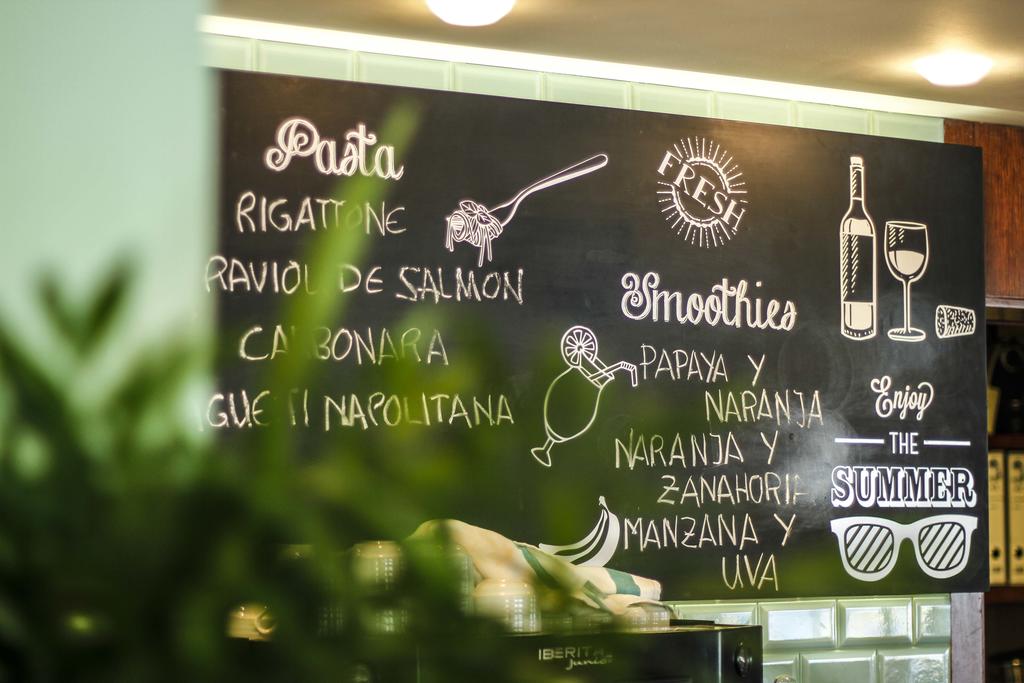 Pasta
RIGATTONE
RAVIOLI DE SALMON
CARBONARA
NAPOLITANA
FRESH
Smoothies
PAPAYA Y
NARANJA
NARANJA Y
ZANAHORIA
MANZANA Y
UVA
Enjoy
THE
SUMMER
IBERITAL
junior